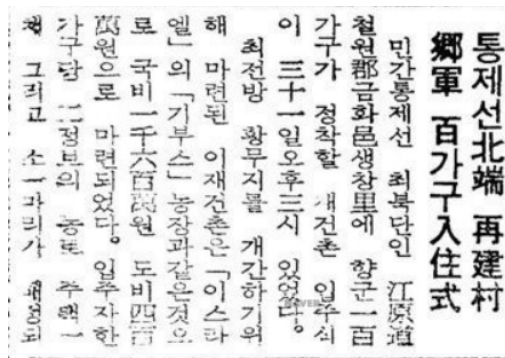 통제선北端 再建村
鄕軍 百가구入住式
민간통제선 최북단인 江原道
철원郡금화邑생창里에 향군一百
가구가 정착할 재건촌 입주식
이 三十一일오후三시 있었다。
최전방 황무지를 개간하기위
해 마련된 이재건촌은「이스라
엘」의「기부스」농장과같은것으
로 국비一千六百萬원 도비四百
萬원으로 마련되었다。입주자한
가구당 二정보의 농토 주택一
채 그리고 소一마리가 배정되